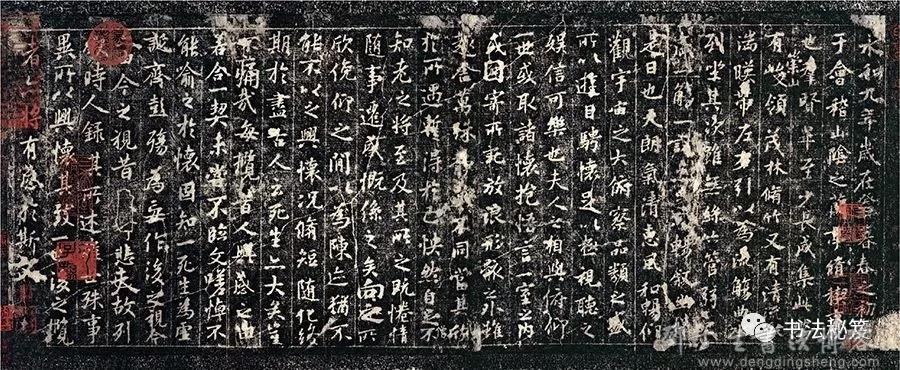 永和九年歲在癸丑暮春之初
于會稽山陰之蘭亭脩禊
也羣賢畢至少長咸集此
有崇山領茂林脩竹又有清流
湍暎帶左右引以為流觴曲
列坐其次雖無絲竹管弦
盛一觴一詠暢敘幽
是日也天朗氣清惠風和暢仰
觀宇宙之大俯察品類之盛
所以遊目騁懷足以極視聽之
娛信可樂也夫人之相與俯仰
一世或取諸懷抱悟言一室之內
或因寄所託放浪形骸之外雖
趣舍萬殊不同當其欣
於所遇蹔得於己怏然自足不
知老之將至及其所之既惓情
隨事遷感慨係之矣向之所
欣俛仰之間以為陳迹猶不
能不以之興懷況脩短隨化終
期於盡古人云死生亦大矣豈
不痛哉每攬昔人興感之由
若合一契未嘗不臨文嗟悼不
能喻之於懷固知一死生為虛
誕齊彭殤為妄作後之視今
今之視昔悲夫故列
時人錄其所述殊事
異所以興懷其致一也後之攬
者亦將有感於斯文
书法秘笈
www.dengdingsheng.com